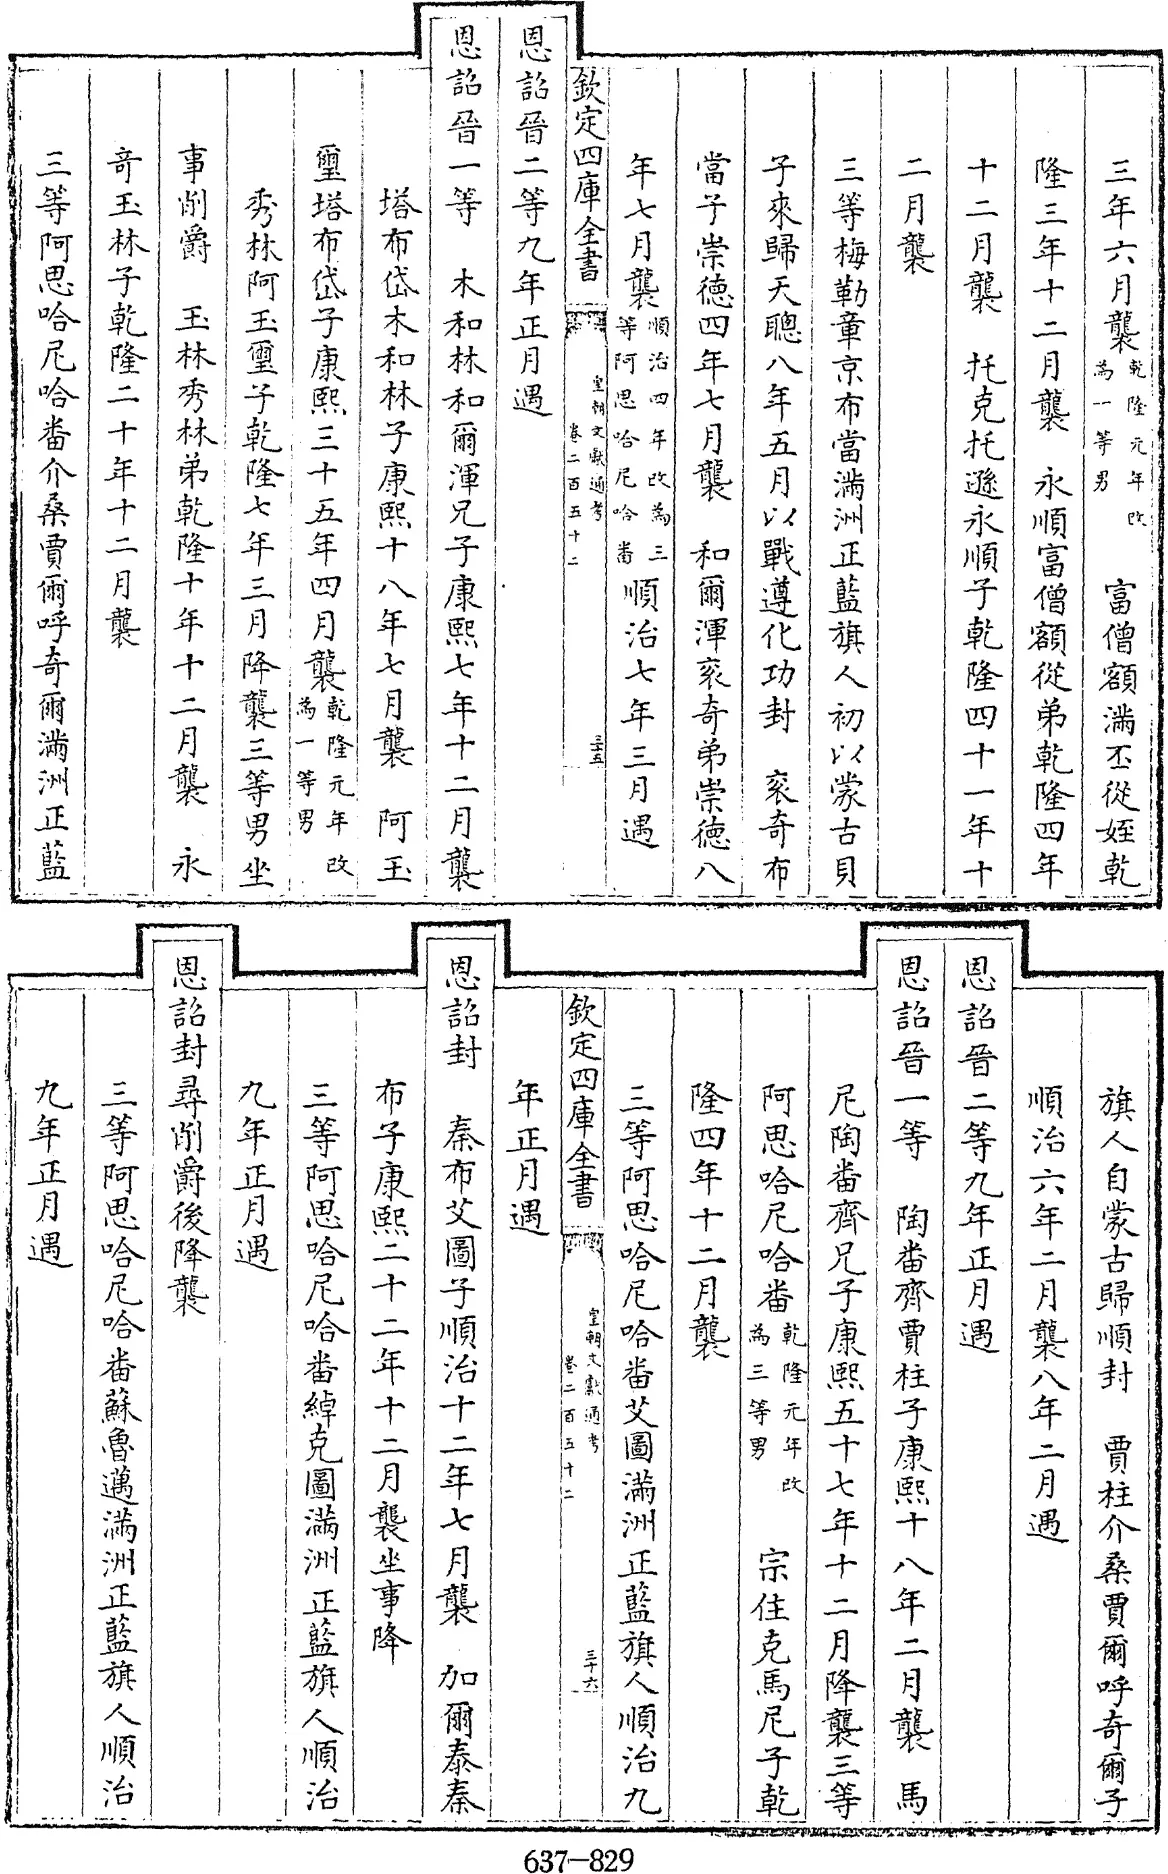 三年六月襲乾隆元年改為一等男　富僧額滿丕從姪乾
隆三年十二月襲　永順富僧額從弟乾隆四年
十二月襲　托克托遜永順子乾隆四十一年十
二月襲
三等梅勒章京布當滿洲正藍旗人初以蒙古貝
子來歸天聰八年五月以戰遵化功封　衮奇布
當子崇德四年七月襲　和爾渾衮奇弟崇德八
年七月襲順治四年改為三等阿思哈尼哈番順治七年三月遇
欽定四庫全書
皇朝文獻通考
卷二百五十二
三五
恩詔晉二等九年正月遇
恩詔晉一等　木和林和爾渾兄子康熙七年十二月襲
塔布岱木和林子康熙十八年七月襲　阿玉
璽塔布岱子康熙三十五年四月襲乾隆元年改為一等男
秀林阿玉璽子乾隆七年三月降襲三等男坐
事削爵　玉林秀林弟乾隆十年十二月襲　永
奇玉林子乾隆二十年十二月襲
三等阿思哈尼哈番介桑賈爾呼奇爾滿洲正藍
旗人自蒙古歸順封　賈柱介桑賈爾呼奇爾子
順治六年二月襲八年二月遇
恩詔晉二等九年正月遇
恩詔晉一等　陶番齊賈柱子康熙十八年二月襲　馬
尼陶番齊兄子康熙五十七年十二月降襲三等
阿思哈尼哈番乾隆元年改為三等男　宗住克馬尼子乾
隆四年十二月襲
三等阿思哈尼哈番艾圖滿洲正藍旗人順治九
欽定四庫全書
皇朝文獻通考
卷二百五十二
三十六
年正月遇
恩詔封　秦布艾圖子順治十二年七月襲　加爾泰秦
布子康熙二十二年十二月襲坐事降
三等阿思哈尼哈番綽克圖滿洲正藍旗人順治
九年正月遇
恩詔封尋削爵後降襲
三等阿思哈尼哈番蘇魯邁滿洲正藍旗人順治
九年正月遇
637-829